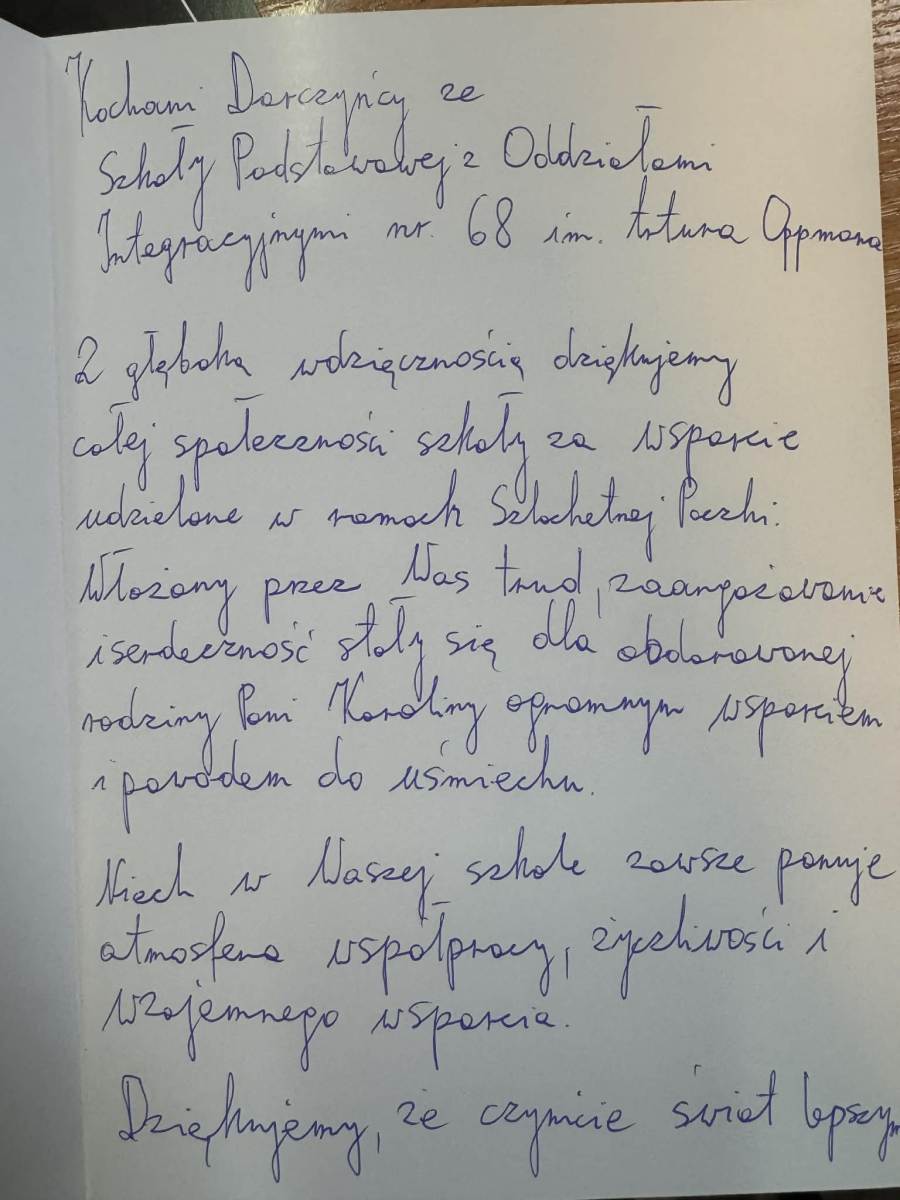 Kochani Darczyńcy ze
Szkoły Podstawowej z Oddziałami
Integracyjnymi nr. 68 im. Artura Oppmana
Z głęboką wdzięcznością dziękujemy
całej społeczności szkoły za wsparcie
udzielone w ramach Szlachetnej Paczki.
Włożony przez Was trud, zaangażowanie
i serdeczność stały się dla obdarowanej
rodziny Pani Karoliny ogromnym wsparciem
i powodem do uśmiechu.
Niech w Waszej szkole zawsze panuje
atmosfera współpracy, życzliwości i
wzajemnego wsparcia.
Dziękujemy, że czynicie świat lepszym